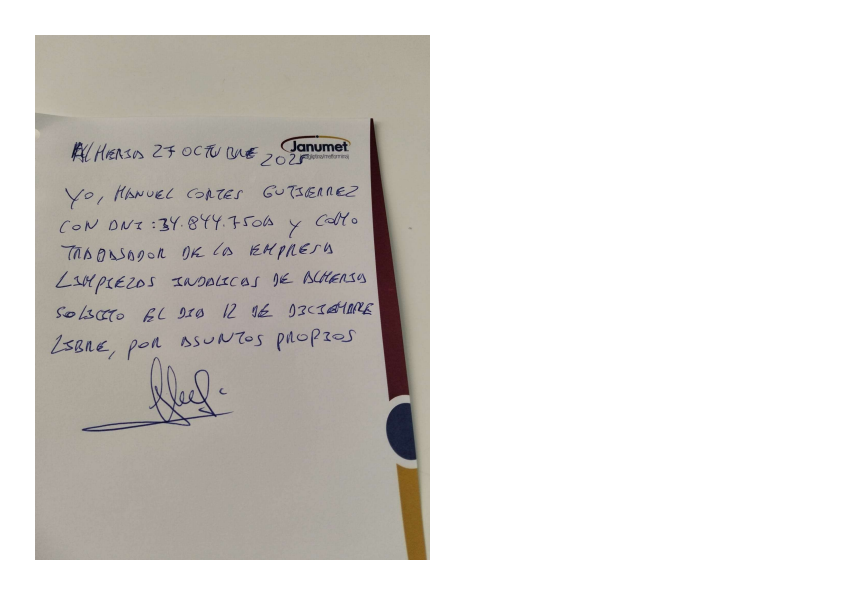 ALMERIA 27 OCTUBRE 2025
Janumet
YO, MANUEL CORTES GUTIERREZ
CON DNI: 34.844.750A Y COMO
TRABAJADOR DE LA EMPRESA
LIMPIEZAS INDALICAS DE ALMERIA
SOLICITO EL DIA 12 DE DICIEMBRE
LIBRE, POR ASUNTOS PROPIOS